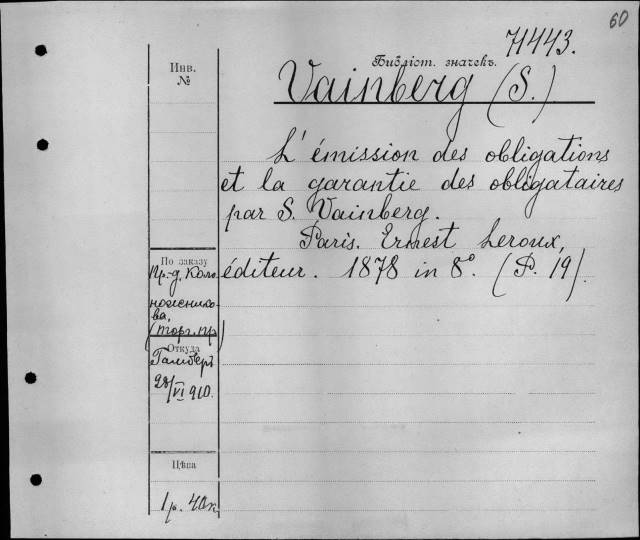 60
71443.
Библіот. значекъ.
Инв.
№
Vainberg (S.)
L'émission des obligations
et la garantie des obligataires
par S. Vainberg.
Paris. Ernest Leroux,
éditeur. 1878 in 8°. (P. 19).
По заказу
пр.-д. Коло
ножнико
ва,
(торг. пр)
Откуда
Гамберъ
28/VI 910.
Цѣна
1 р. 40 к